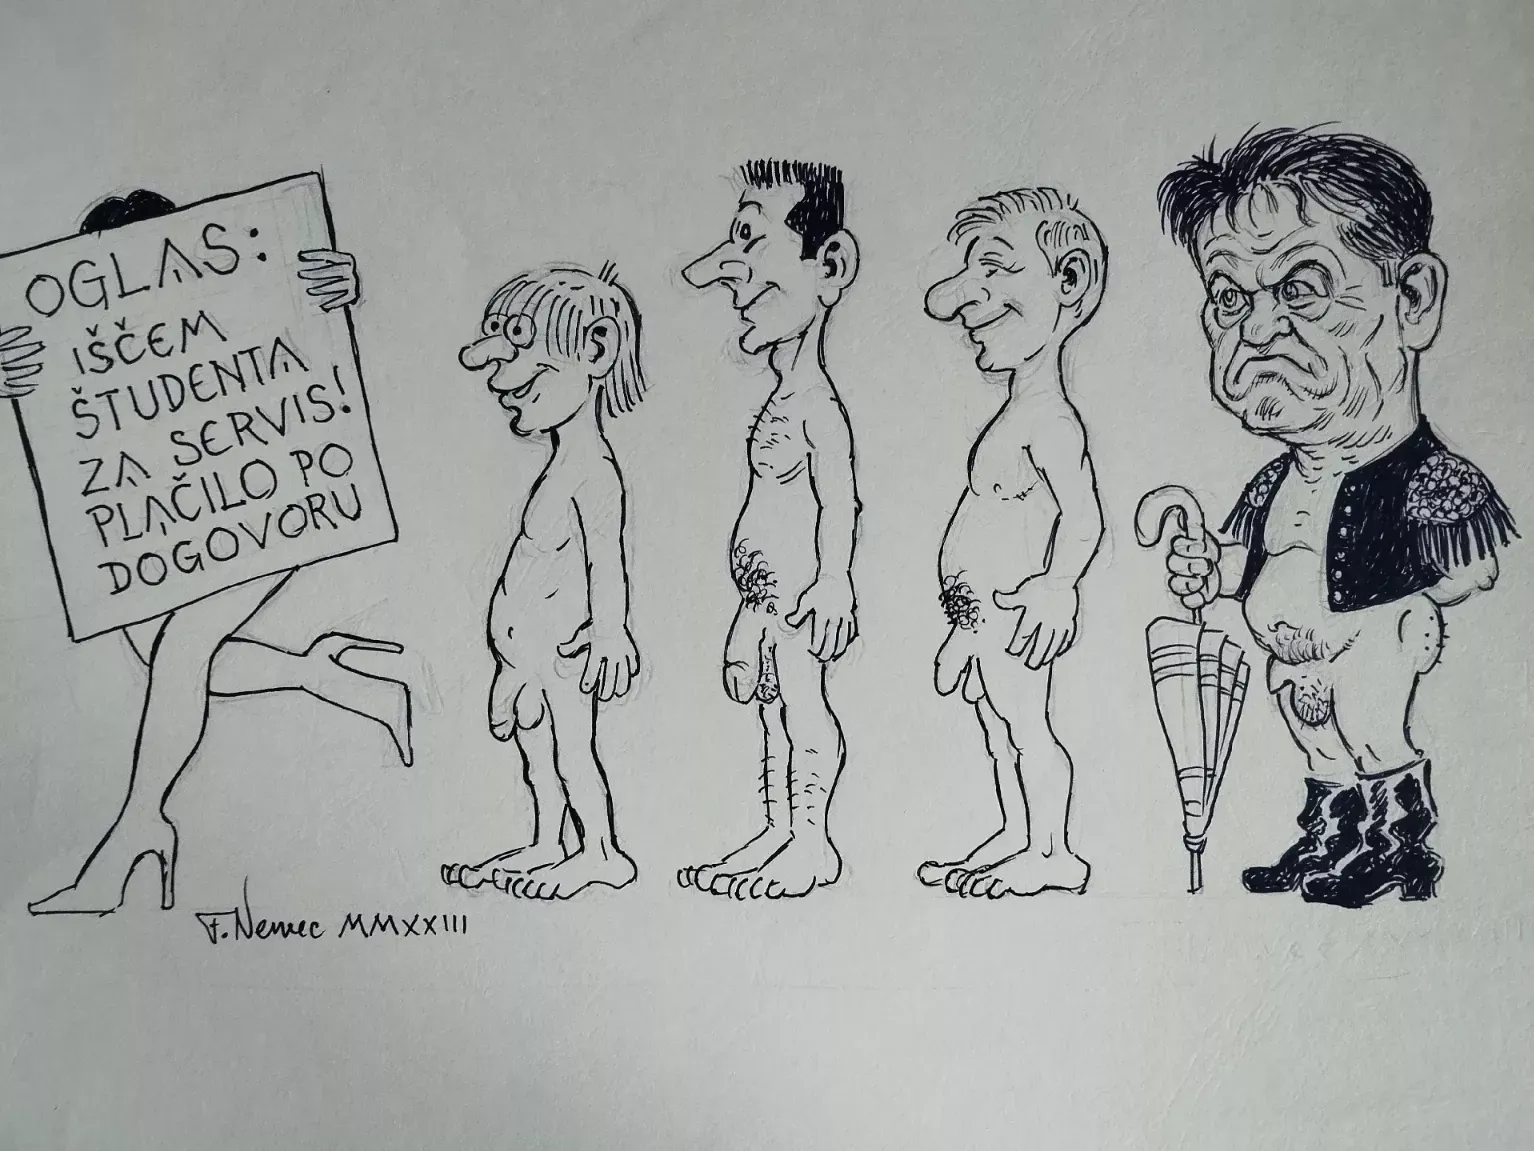 OGLAS:
IŠČEM
ŠTUDENTA
ZA SERVIS!
PLAČILO PO
DOGOVORU
F. Nemec MMXXIII